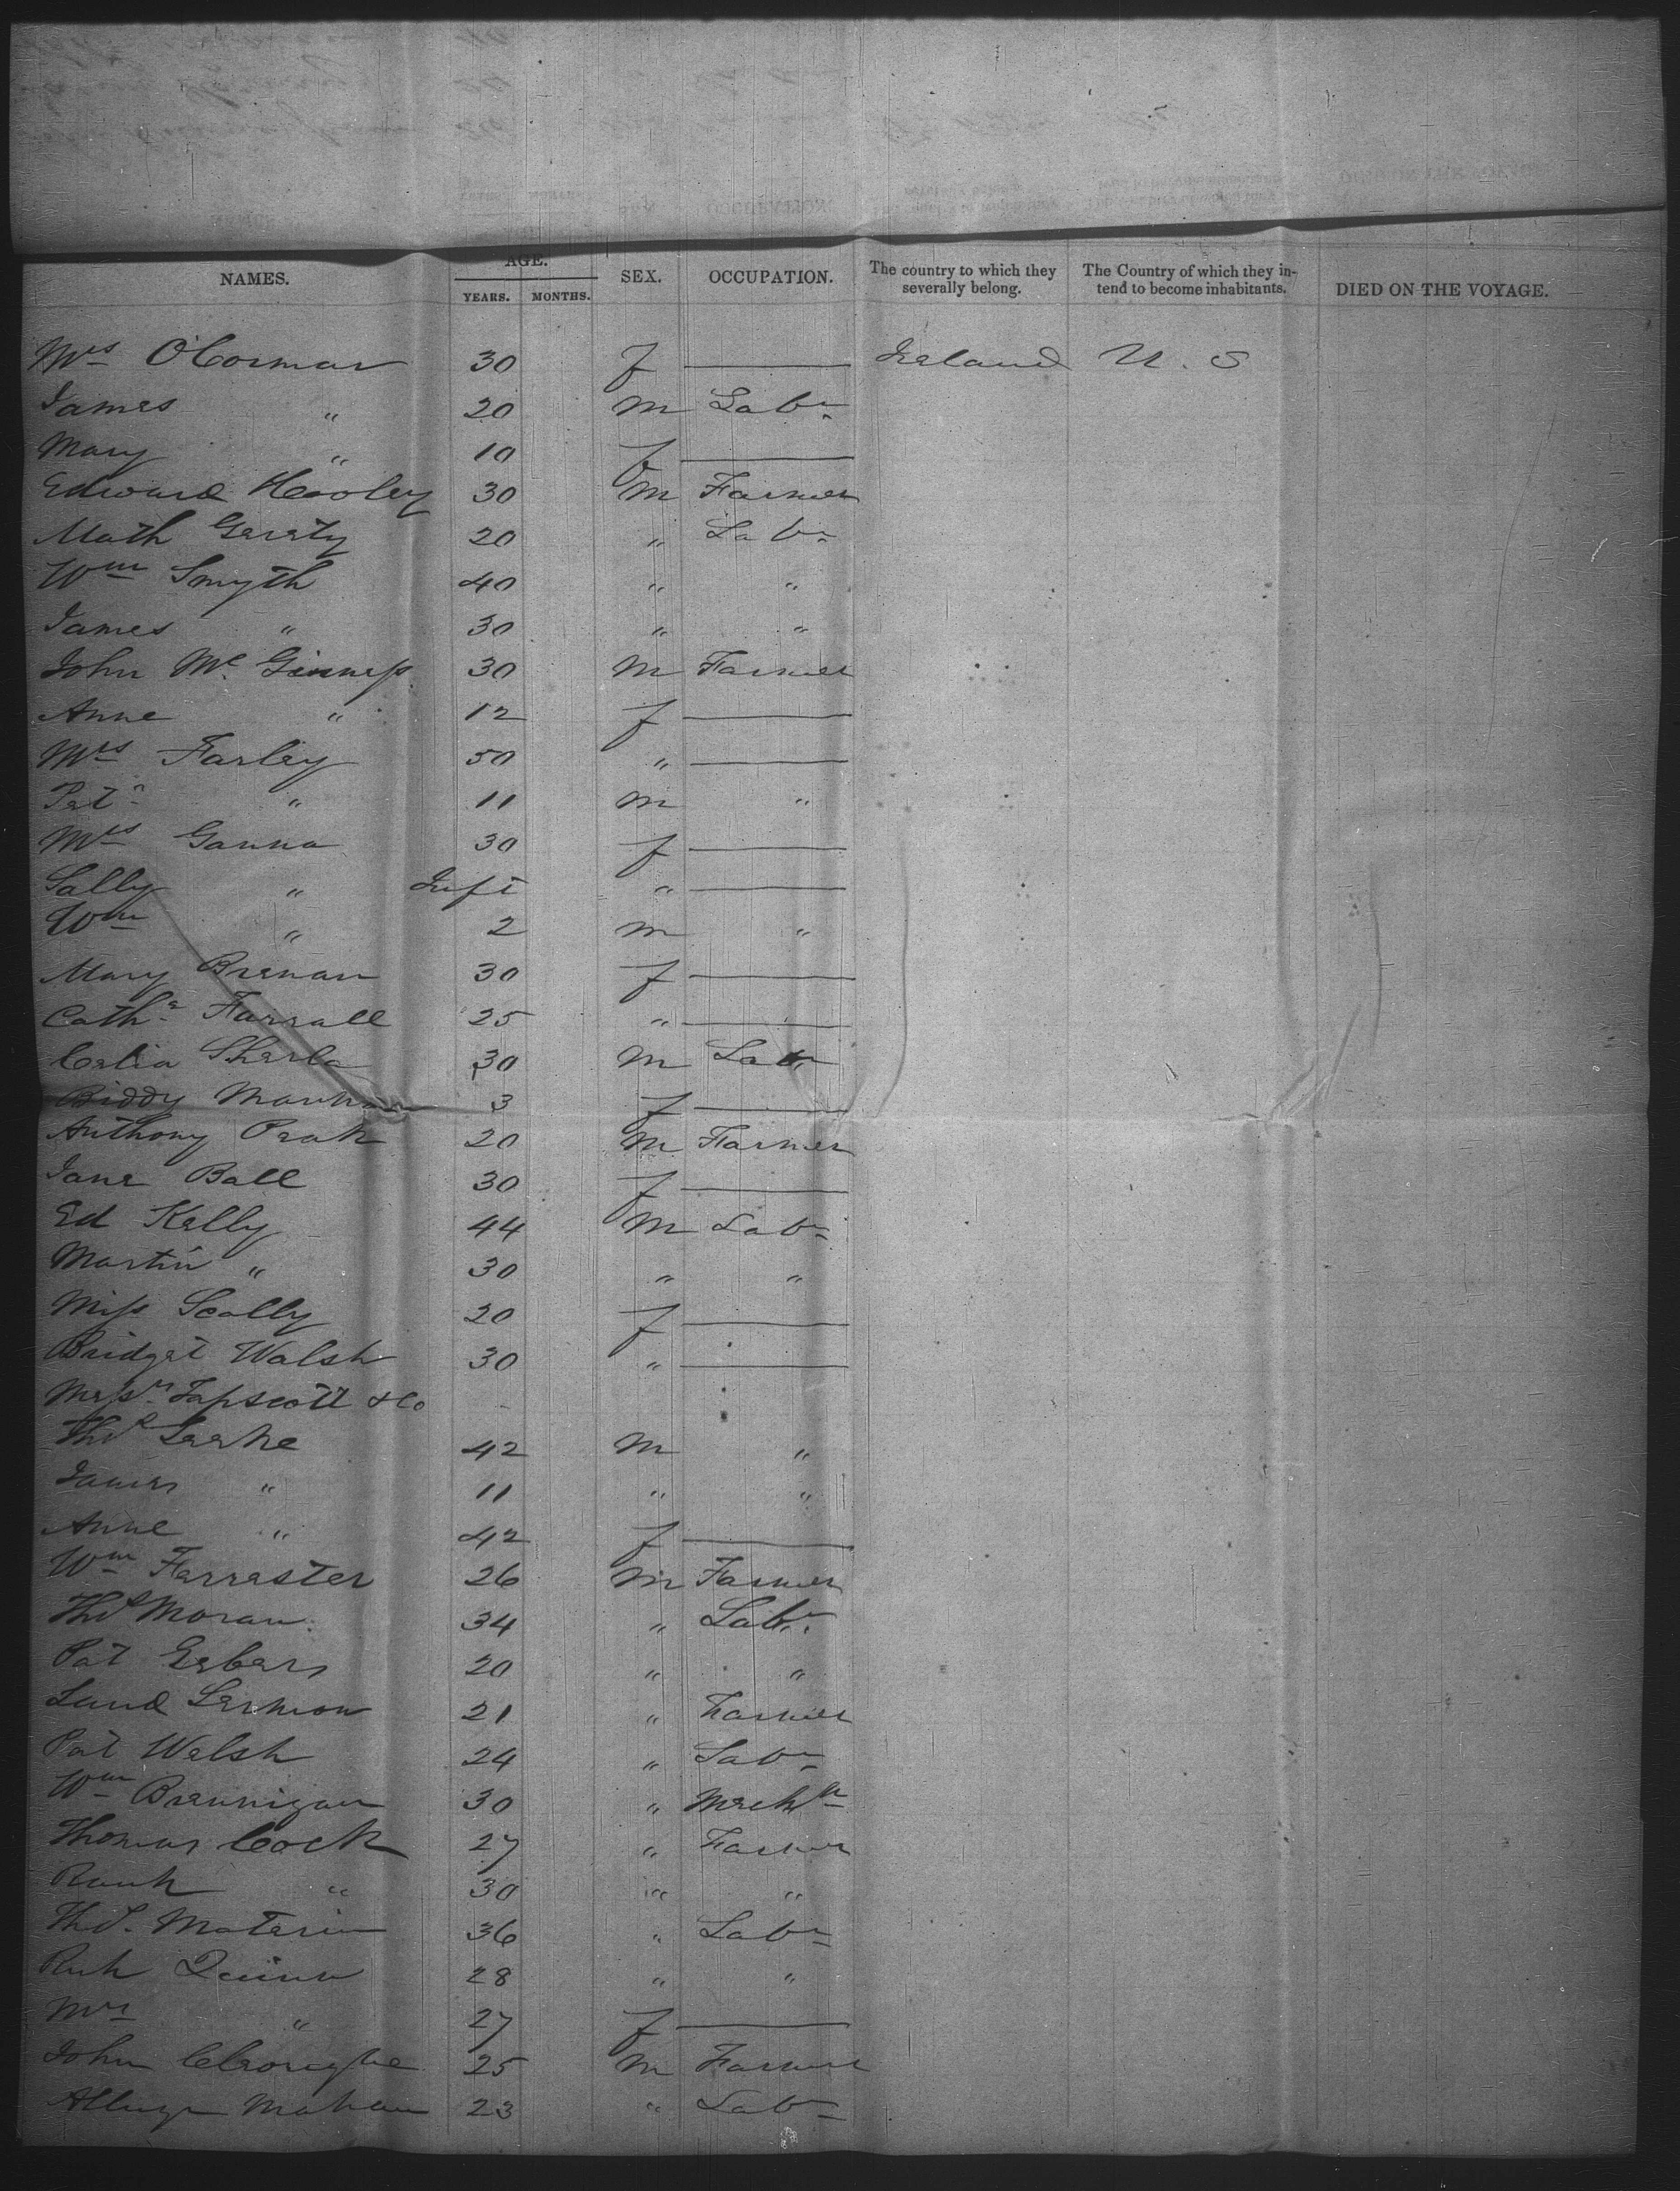 NAMES. AGE. YEARS. MONTHS. SEX. OCCUPATION. The country to which they severally belong. The Country of which they intend to become inhabitants. DIED ON THE VOYAGE.
Mrs O'Cormar 30 f — Ireland U.S
James " 20 m Labr
Mary " 10 f —
Edward Hooley 30 m Farmer
Math Geraty 20 " Labr
Wm Smyth 40 " "
James " 30 " "
John Mc Ginness 30 m Farmer
Anne " 12 f —
Mrs Farley 50 " —
Patk " 11 m "
Mrs Ganna 30 f —
Sally " Inft " —
Wm " 2 m "
Mary Brenan 30 f —
Cathe Farrall 25 " —
Celia 30 m Labr
Biddy 3 f —
Anthony Peak 20 m Farmer
Jane Ball 30 f —
Ed Kelly 44 m Labr
Martin " 30 " "
Miss Scally 20 f —
Bridget Walsh 30 " —
Messrs Tapscott & Co
Thos Leake 42 m "
James " 11 " "
Anne " 42 f —
Wm Farraster 26 m Farmer
Thos Moran 34 " Labr
Pat 20 " "
21 " Farmer
Pat Walsh 24 " Labr
Wm Brannigan 30 " Mech
Thomas Cock 27 " Farmer
30 " "
Thos 36 " Labr
Quinn 28 " "
Mrs " 27 f —
John 25 m Farmer
Mahan 23 " Labr